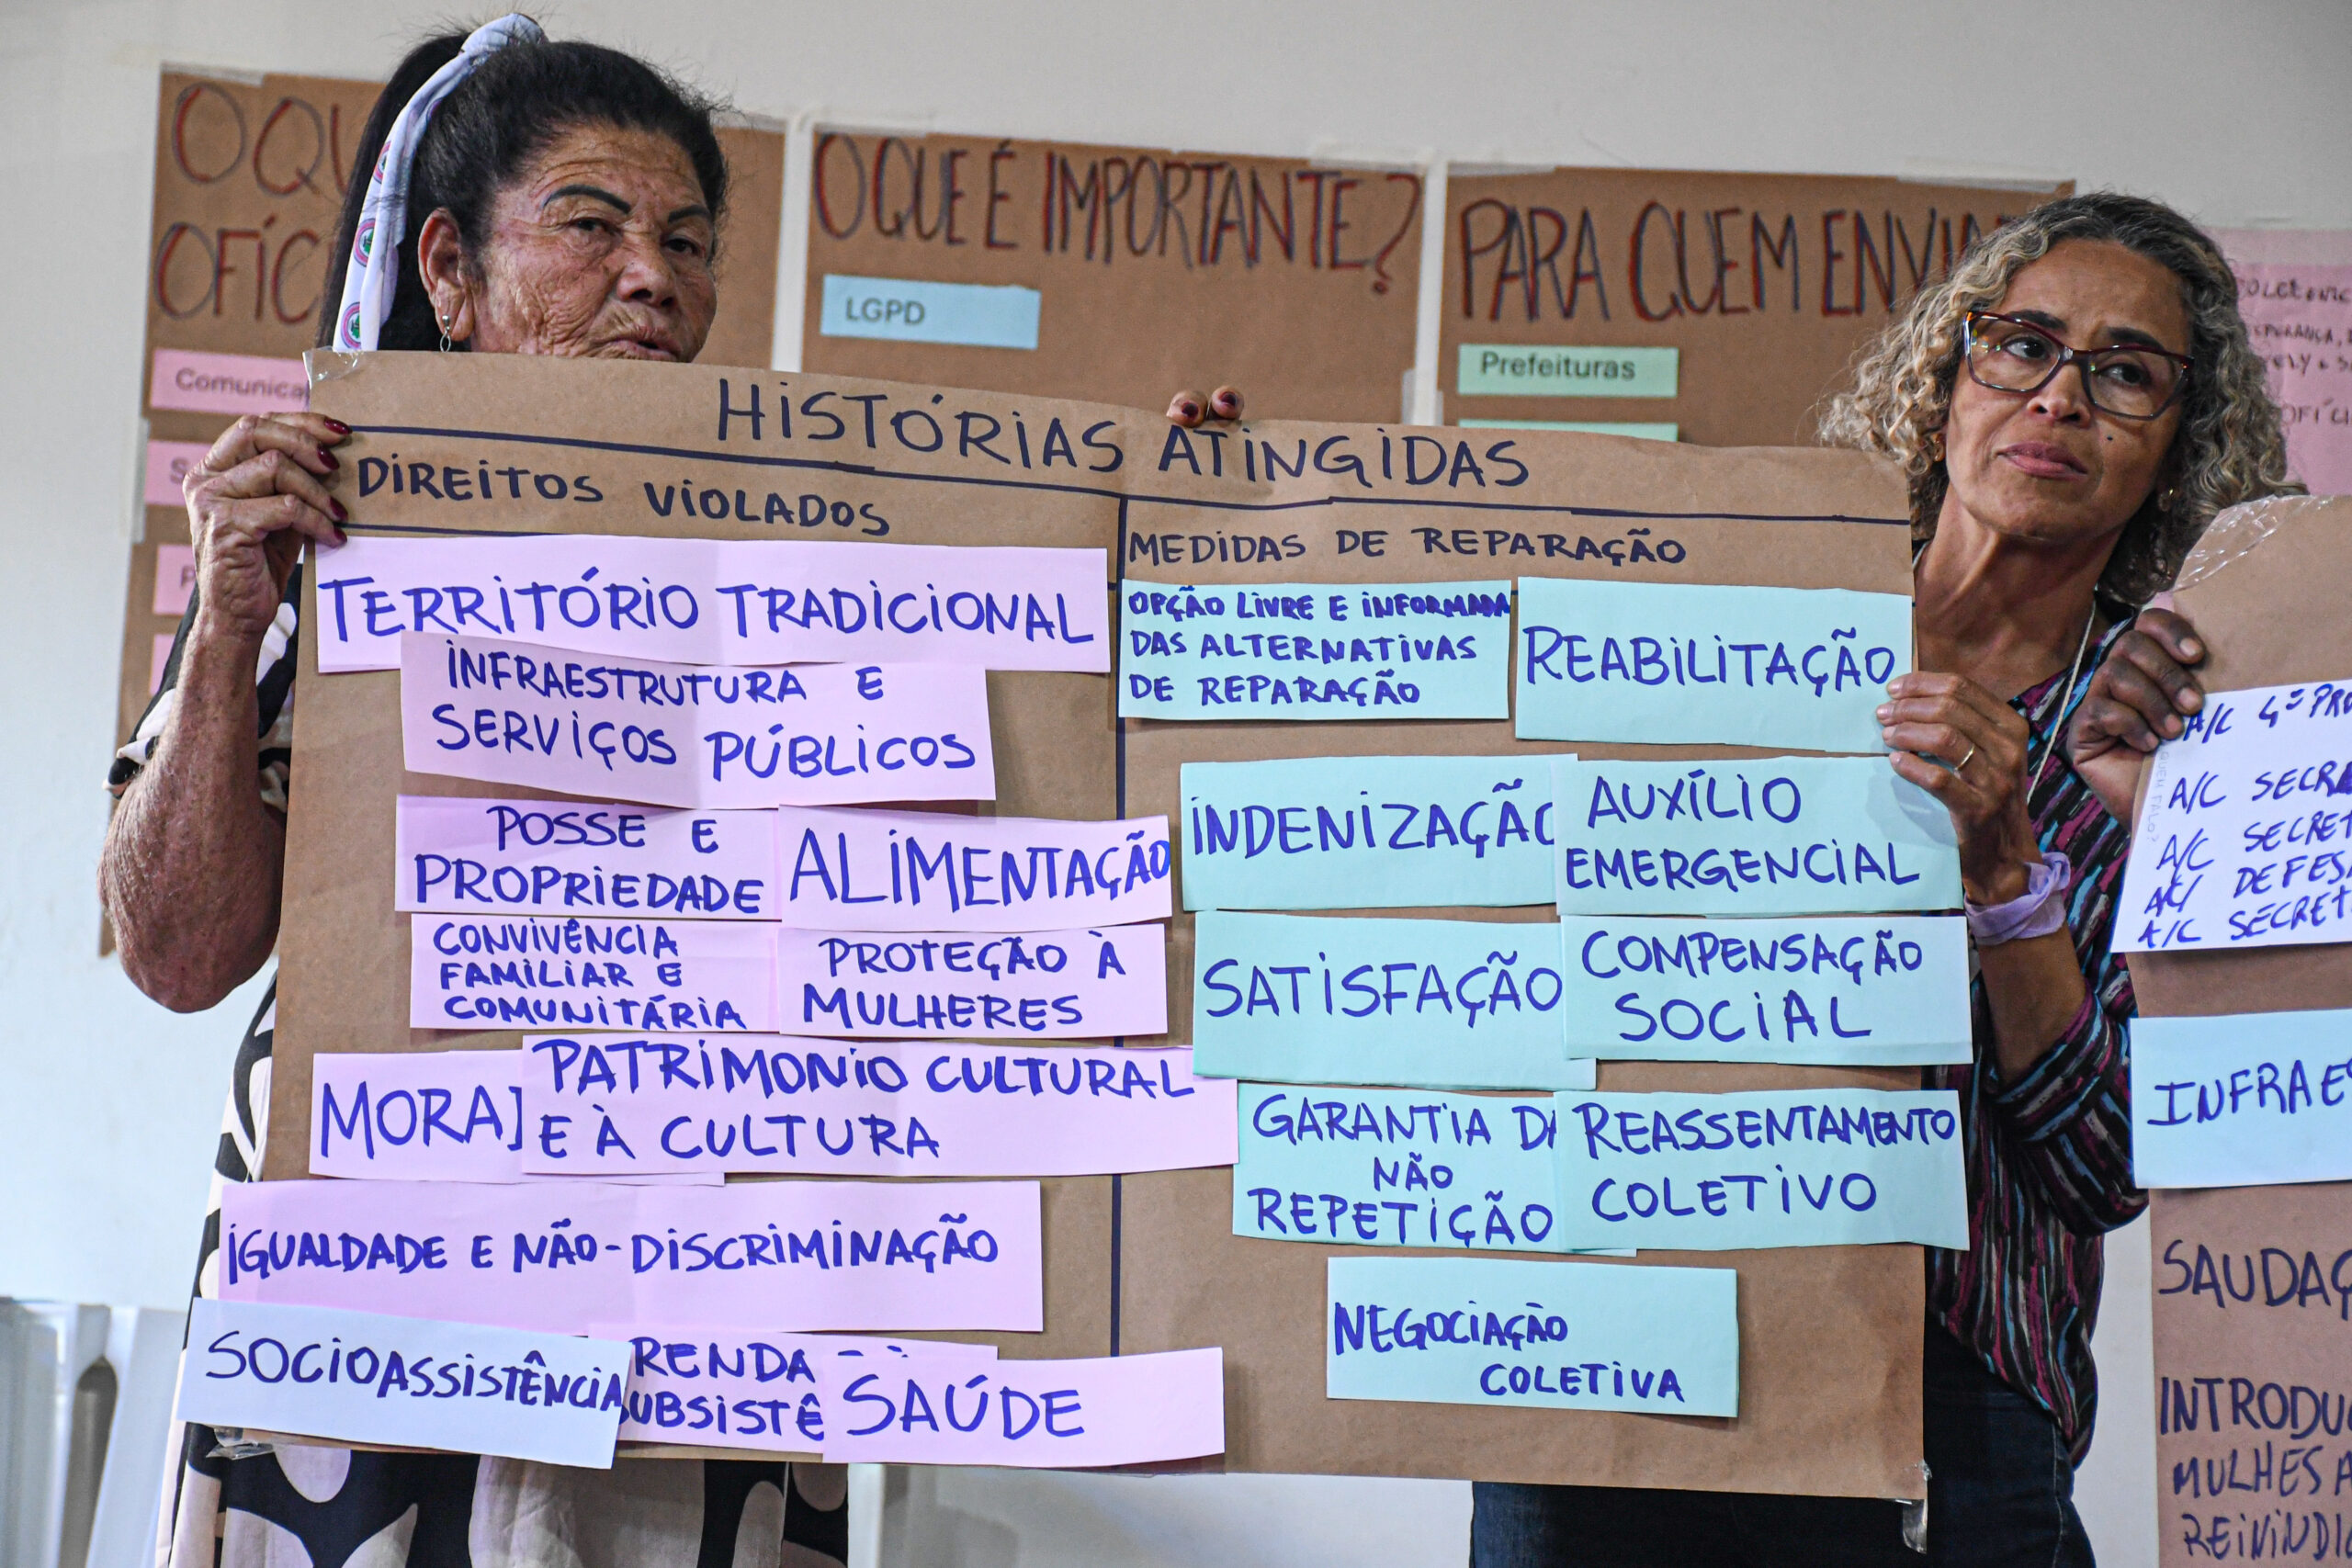 O QUE É IMPORTANTE?
LGPD
PARA QUEM
Prefeituras
HISTÓRIAS ATINGIDAS
DIREITOS VIOLADOS
TERRITÓRIO TRADICIONAL
INFRAESTRUTURA E
SERVIÇOS PÚBLICOS
POSSE E
PROPRIEDADE
ALIMENTAÇÃO
CONVIVÊNCIA
FAMILIAR E
COMUNITÁRIA
PROTEÇÃO À
MULHERES
PATRIMONIO CULTURAL
E À CULTURA
IGUALDADE E NÃO-DISCRIMINAÇÃO
SOCIOASSISTÊNCIA
RENDA
SAÚDE
MEDIDAS DE REPARAÇÃO
OPÇÃO LIVRE E INFORMADA
DAS ALTERNATIVAS
DE REPARAÇÃO
REABILITAÇÃO
INDENIZAÇÃO
AUXÍLIO
EMERGENCIAL
SATISFAÇÃO
COMPENSAÇÃO
SOCIAL
GARANTIA
NÃO
REPETIÇÃO
REASSENTAMENTO
COLETIVO
NEGOCIAÇÃO
COLETIVA
A/C 4ª
A/C
A/C
A/C
A/C
MULHES